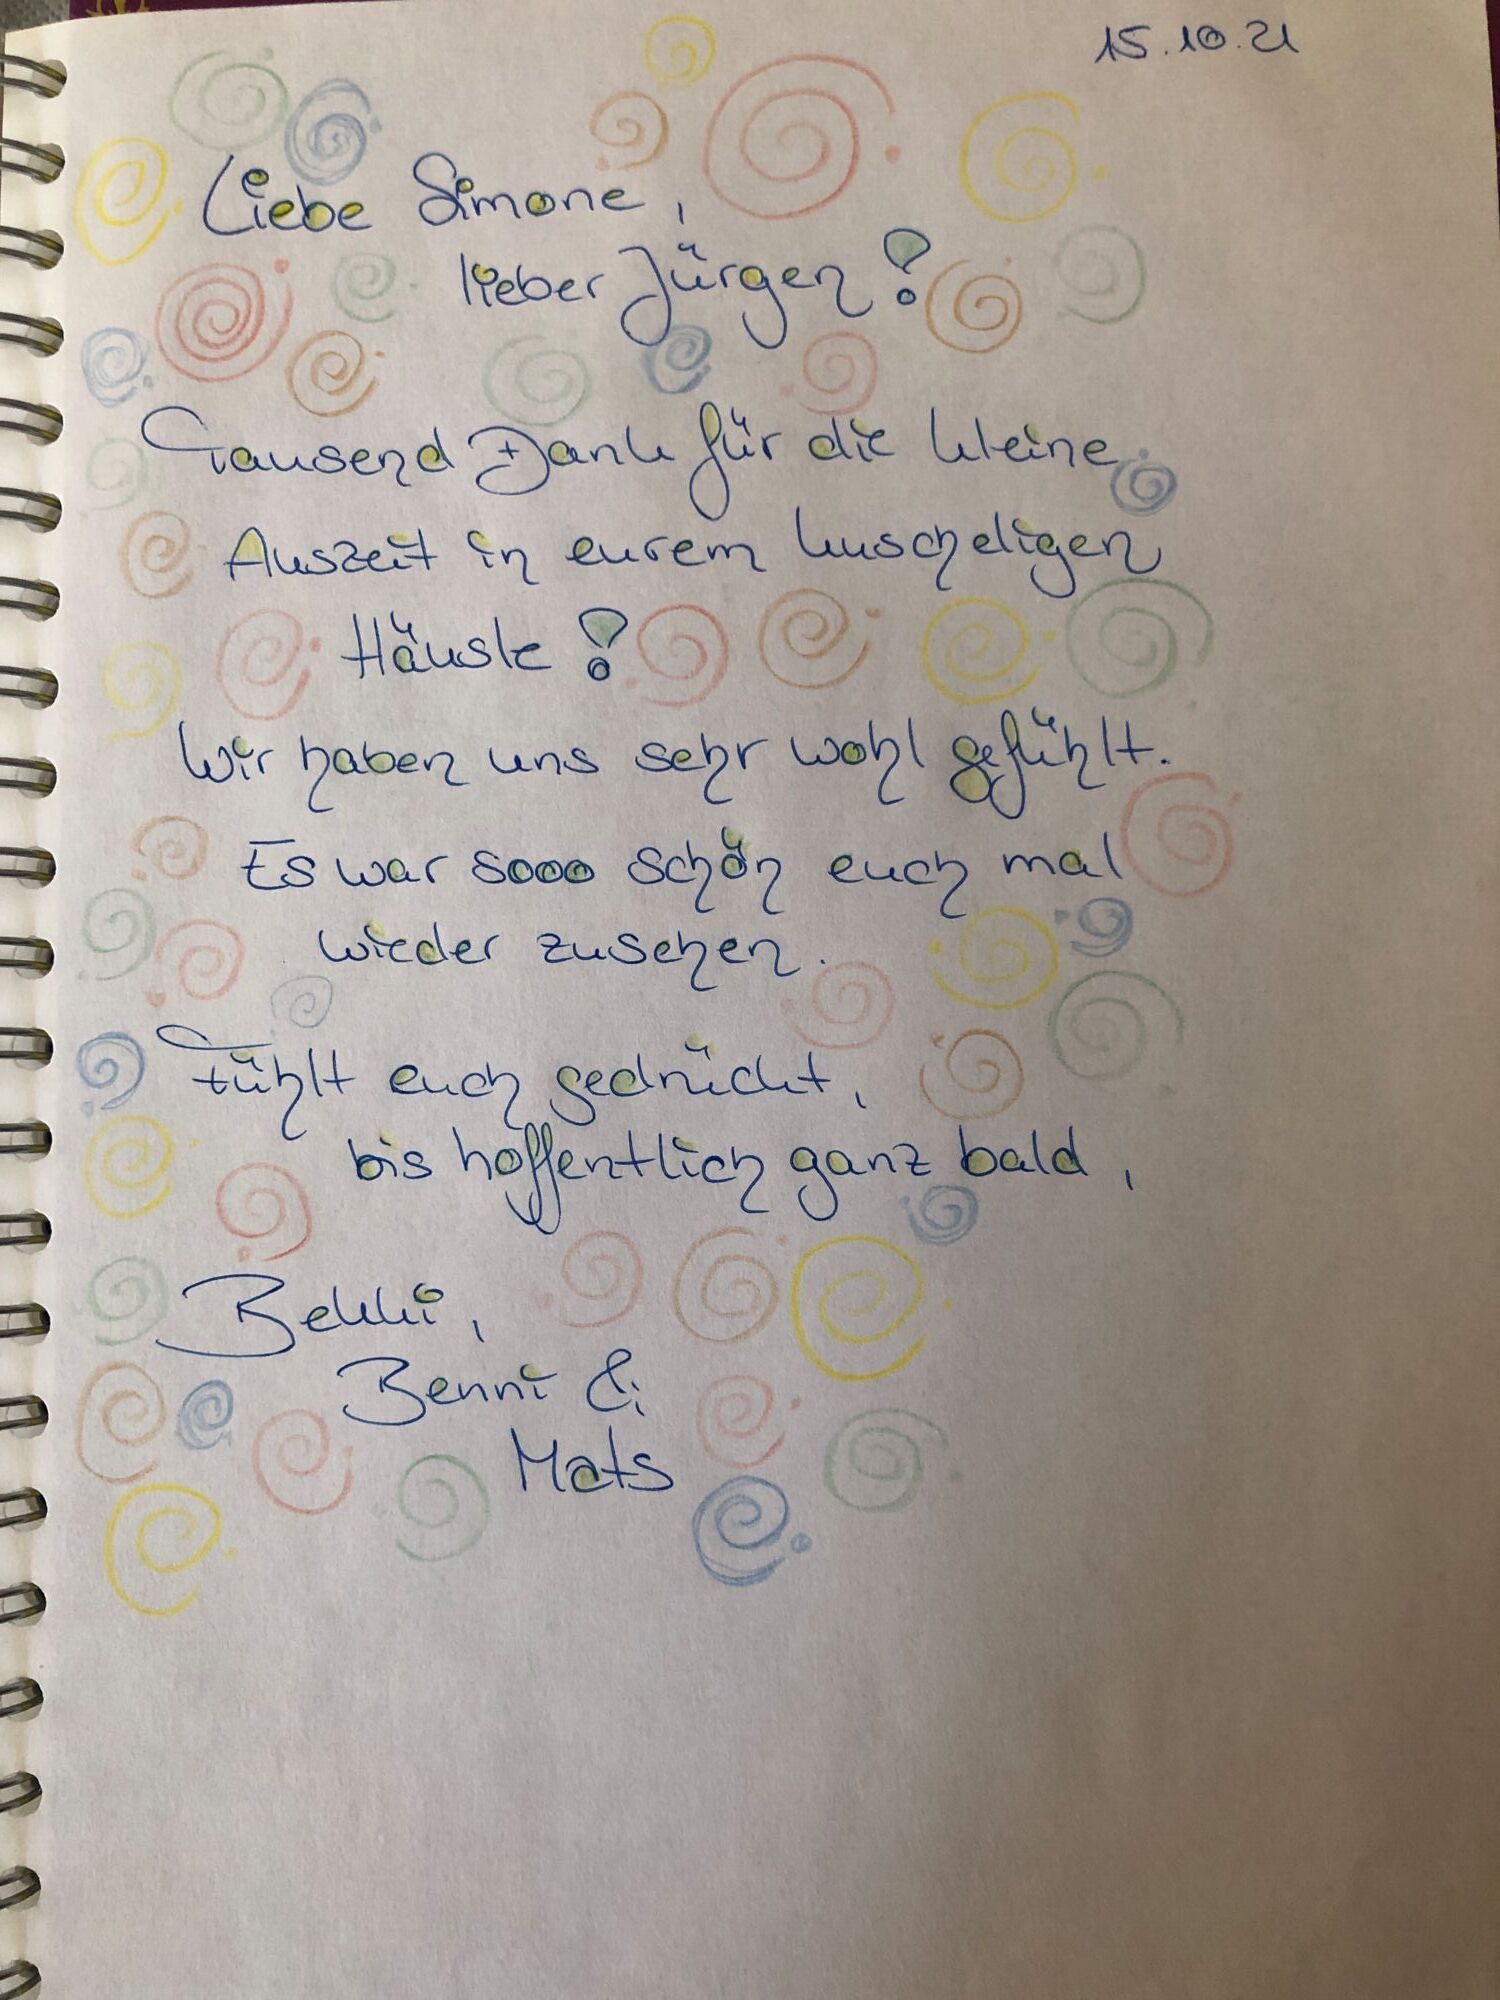 15.10.21
Liebe Simone,
lieber Jürgen!
Tausend Dank für die kleine
Auszeit in eurem kuscheligen
Häusle!
Wir haben uns sehr wohl gefühlt.
Es war sooo schön euch mal
wieder zusehen.
Fühlt euch gedrückt,
bis hoffentlich ganz bald,
Bekki,
Benni &
Mats